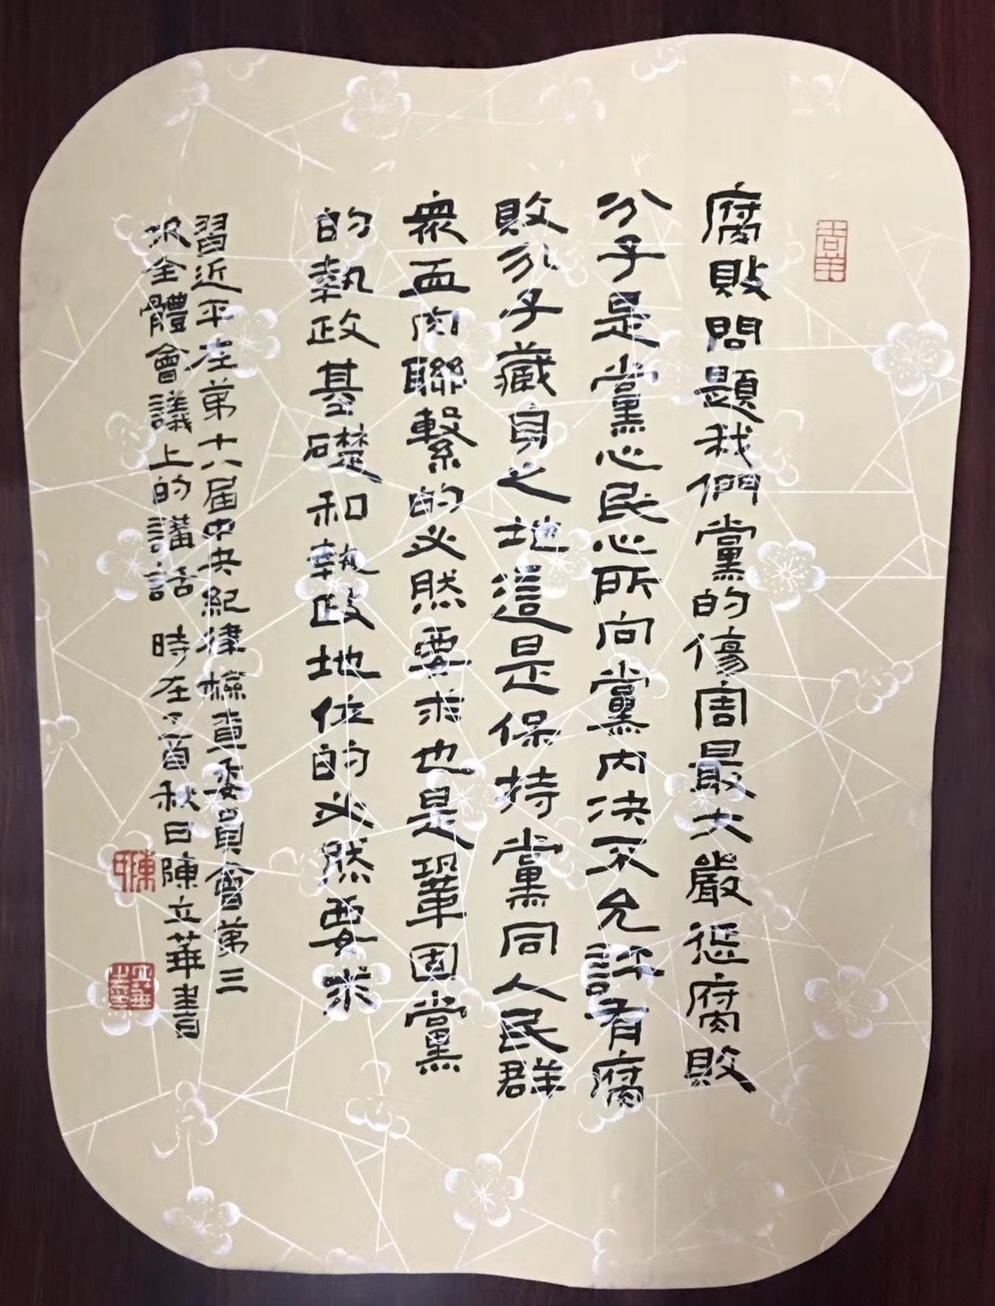 腐敗問題我們黨的傷害最大嚴惩腐敗
分子是黨心民心所向黨內決不允許有腐
敗分子藏身之地這是保持黨同人民群
衆血肉聯繫的必然要求也是鞏固黨
的執政基礎和執政地位的必然要求
習近平在第十八届中央紀律檢查委員會第三
次全體會議上的講話 時在 首秋日陳立華書
陳